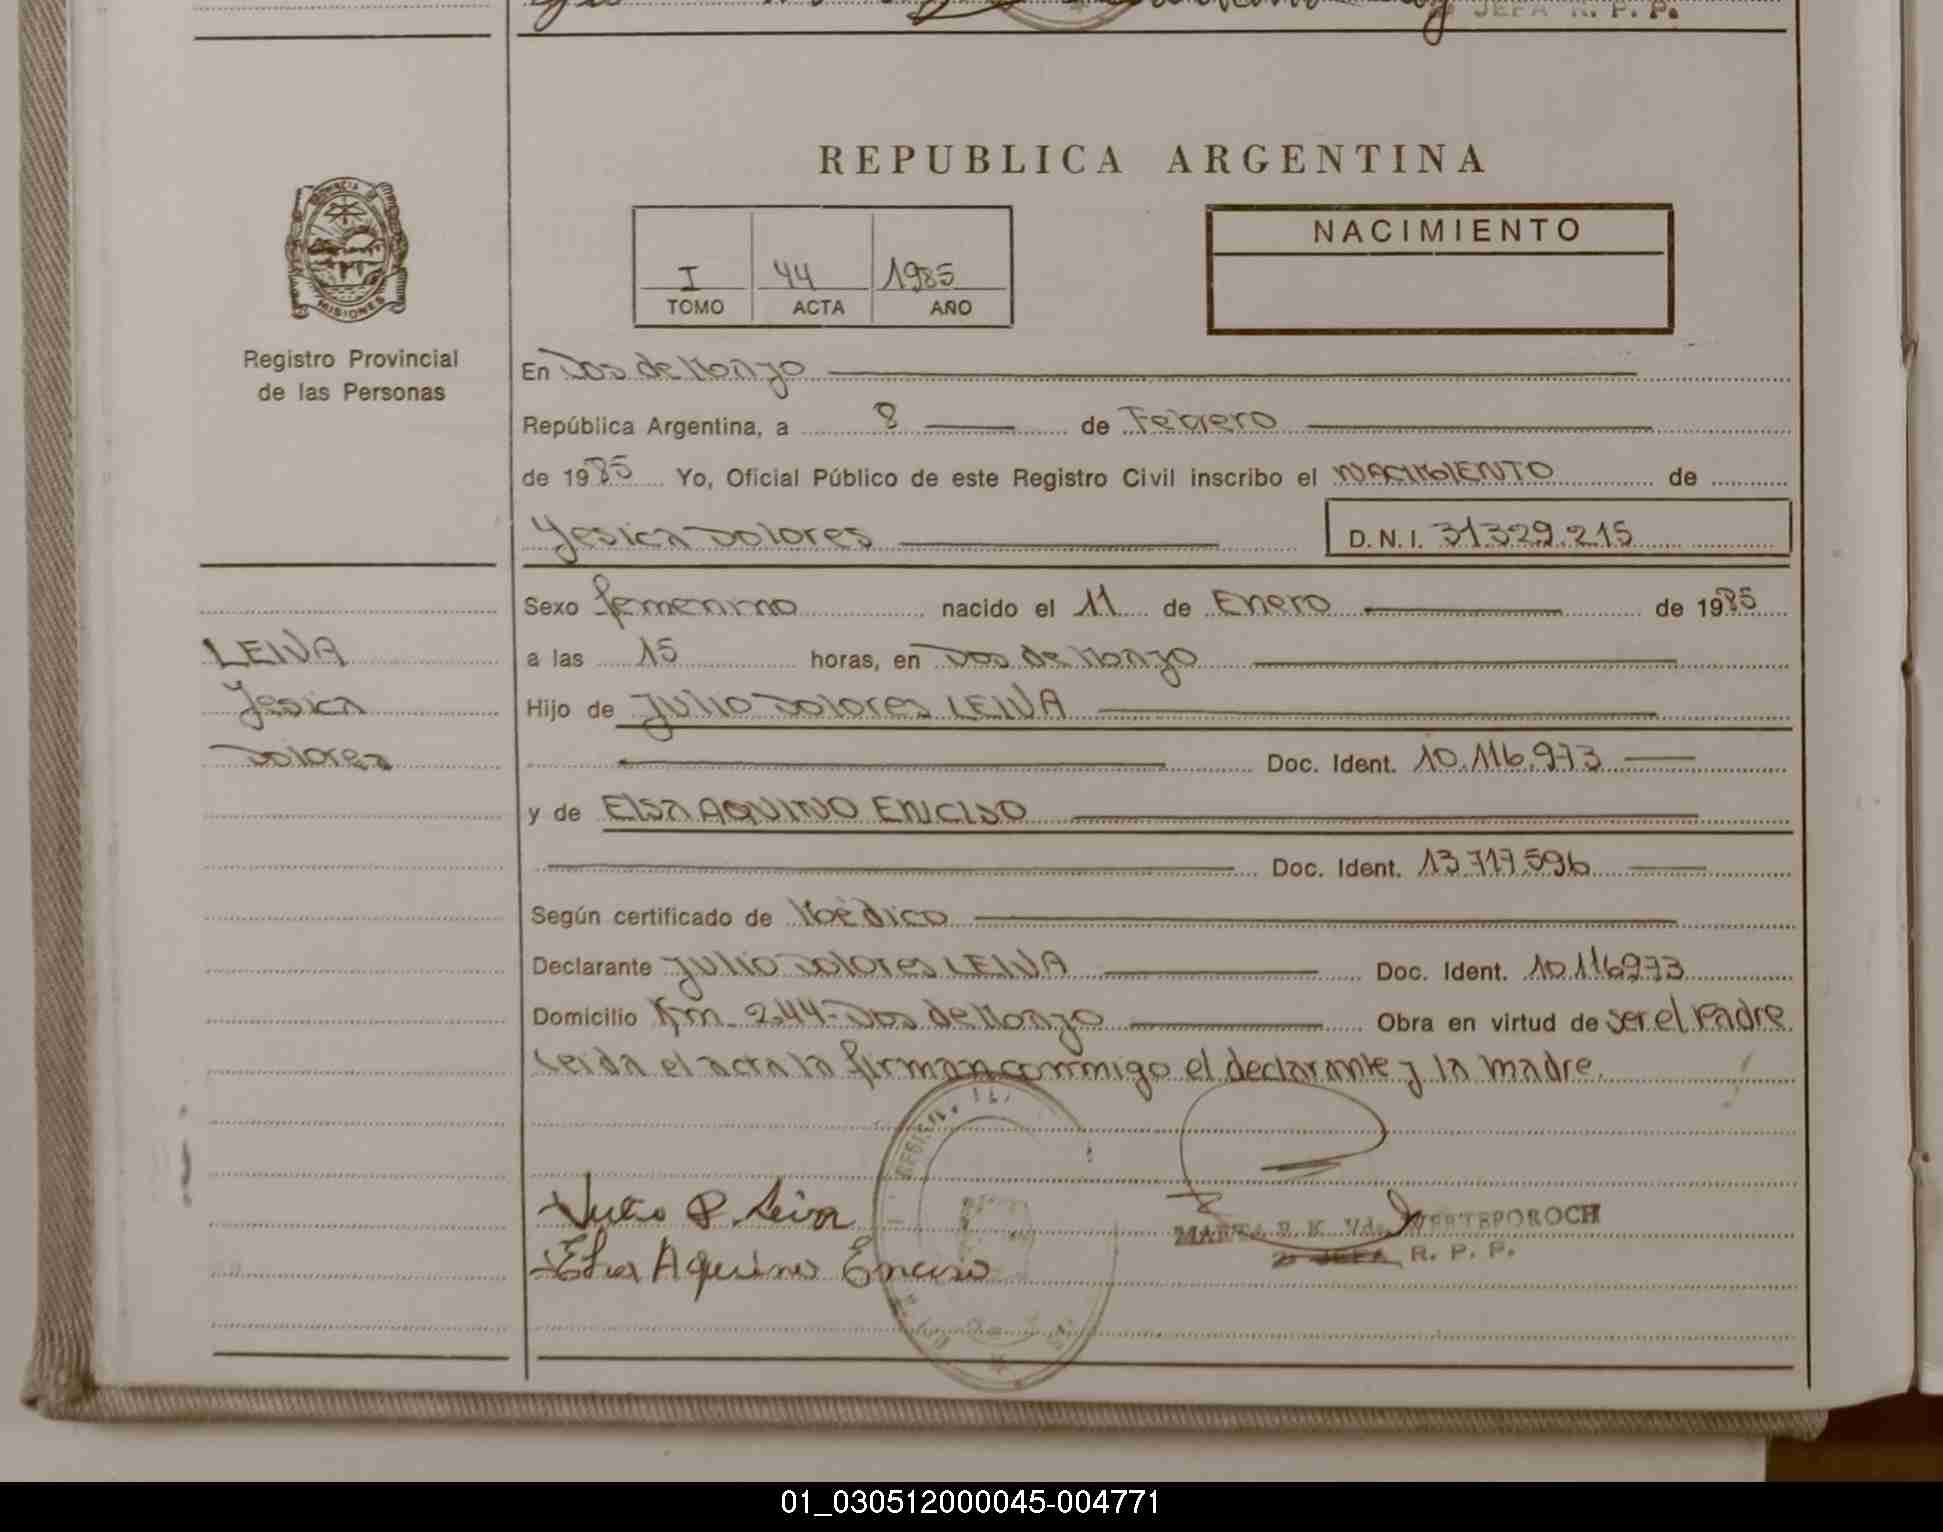 JEFA R. P. P.
REPUBLICA ARGENTINA
PROVINCIA D
MISIONES
Registro Provincial
de las Personas
I 44 1985
TOMO ACTA AÑO
NACIMIENTO
En Dos de Mayo
República Argentina, a 8 de Febrero
de 1985 Yo, Oficial Público de este Registro Civil inscribo el NACIMIENTO de
Yesica Dolores D.N.I. 31.329.215
LEIVA
Yesica
Dolores
Sexo femenino nacido el 11 de Enero de 1985
a las 15 horas, en Dos de Mayo
Hijo de Julio Dolores LEIVA
Doc. Ident. 10.116.973
y de Elsa AQUINO ENCISO
Doc. Ident. 13.717.596
Según certificado de Médico
Declarante Julio Dolores LEIVA Doc. Ident. 10.116973
Domicilio Km. 244-Dos de Mayo Obra en virtud de ser el Padre
Leida el acta la firman conmigo el declarante y la madre.
Julio D. Leiva
Elsa Aquino Enciso
R. P. P.
01_030512000045-004771